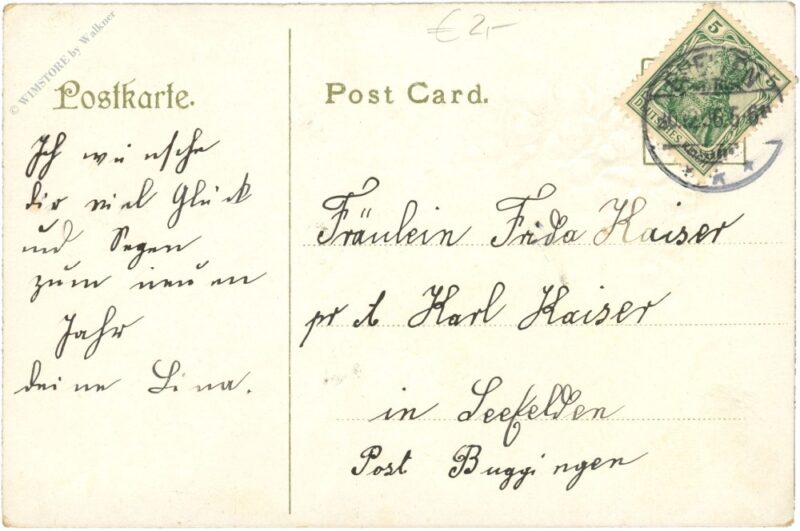 © WIMSTORE by Walkner
€ 2,-
Postkarte.
Post Card.
5
5
DEUTSCHES REICH
Ich wünsche
dir viel Glück
und Segen
zum neuen
Jahr
deine Lina.
Fräulein Frida Kaiser
pr A Karl Kaiser
in Seefelden
Post Buggingen